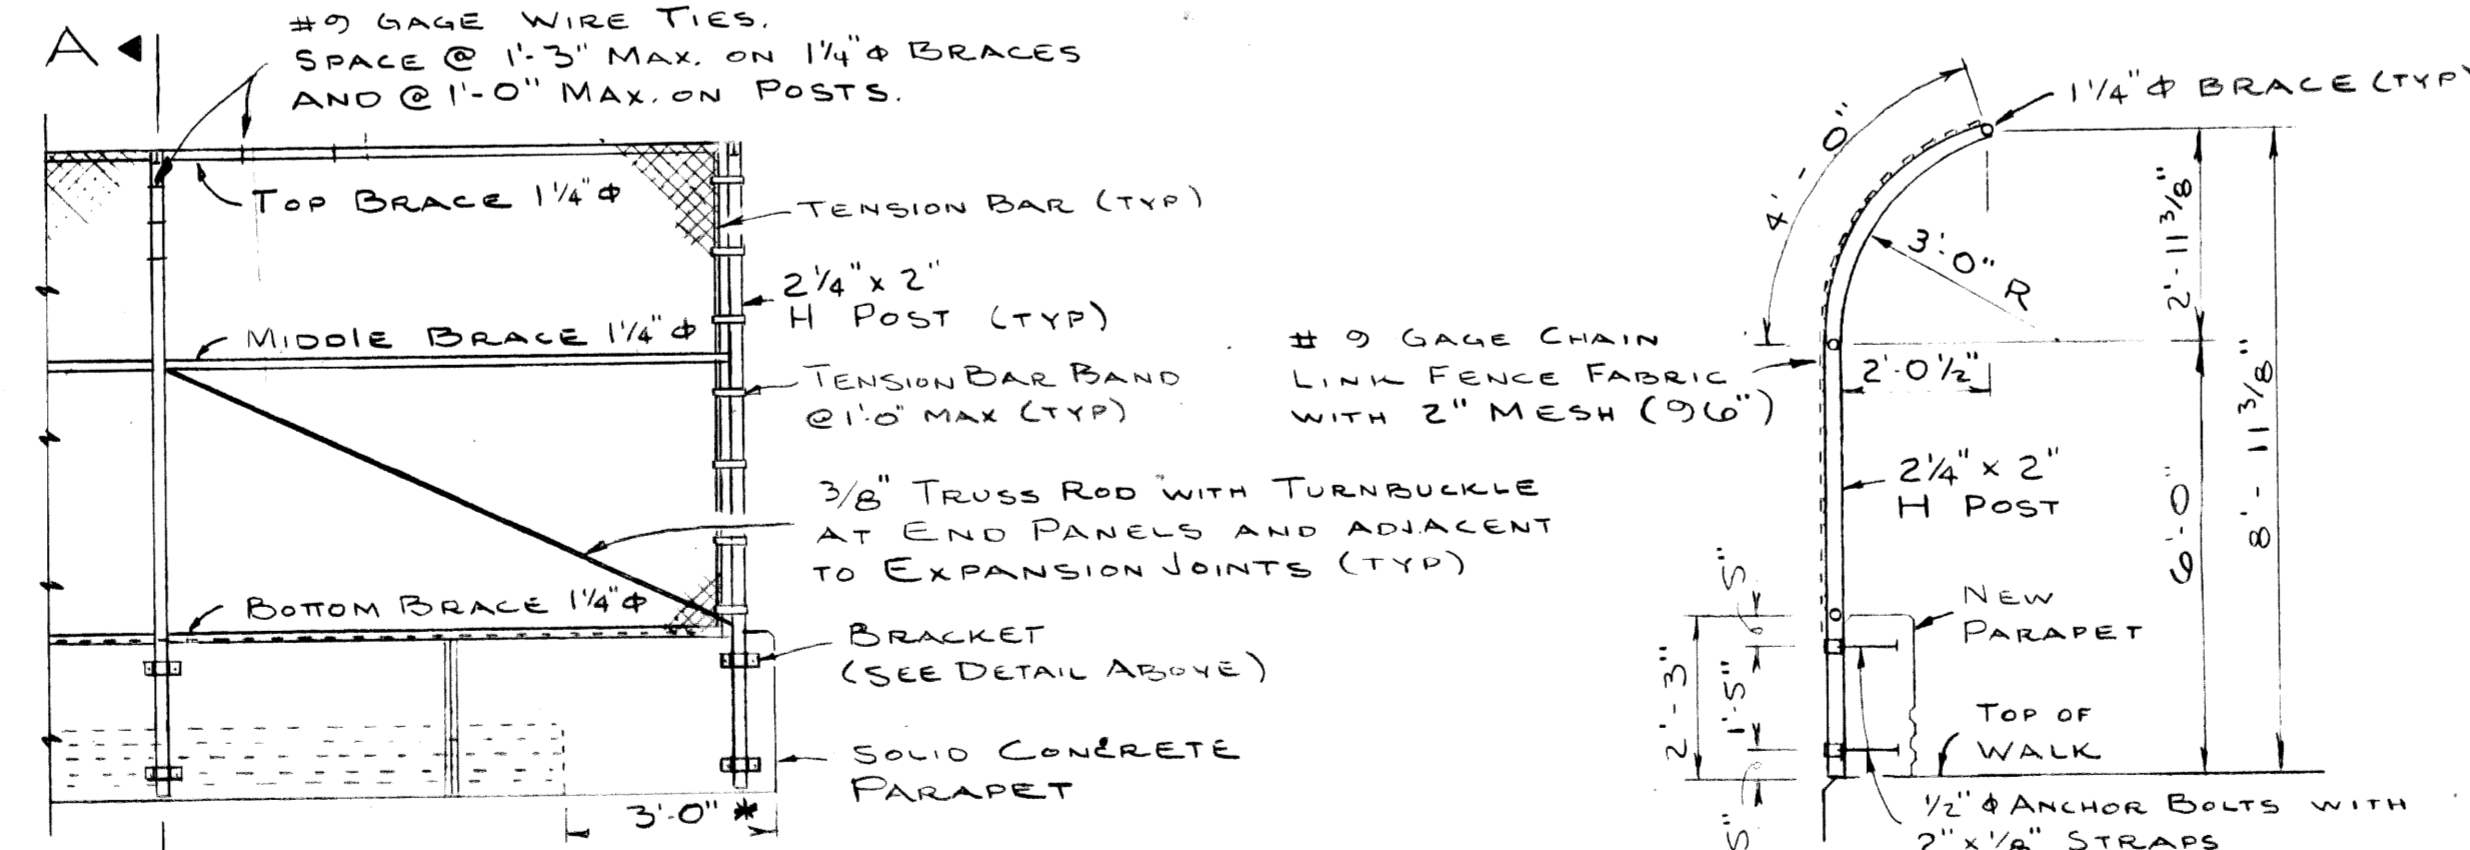 A
#9 GAGE WIRE TIES.
SPACE @ 1'-3" MAX. ON 1 1/4" Φ BRACES
AND @ 1'-0" MAX. ON POSTS.
TOP BRACE 1 1/4" Φ
TENSION BAR (TYP)
2 1/4" x 2"
H POST (TYP)
MIDDLE BRACE 1 1/4" Φ
TENSION BAR BAND
@ 1'-0" MAX (TYP)
3/8" TRUSS ROD WITH TURNBUCKLE
AT END PANELS AND ADJACENT
TO EXPANSION JOINTS (TYP)
BOTTOM BRACE 1 1/4" Φ
BRACKET
(SEE DETAIL ABOVE)
SOLID CONCRETE
PARAPET
3'-0" *
1 1/4" Φ BRACE (TYP
4'-0"
3'-0" R
2'-11 3/8"
# 9 GAGE CHAIN
LINK FENCE FABRIC
WITH 2" MESH (96")
2'-0 1/2"
8'-11 3/8"
2 1/4" x 2"
H POST
6'-0"
5"
NEW
PARAPET
2'-3"
1'-5"
TOP OF
WALK
5"
1/2" Φ ANCHOR BOLTS WITH
2" x 1/8" STRAPS